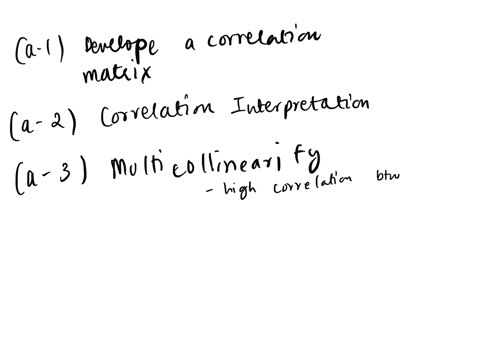 (a-1) Develope a correlation
matrix
(a-2) Correlation Interpretation
(a-3) Multicollinearity
- high correlation btw